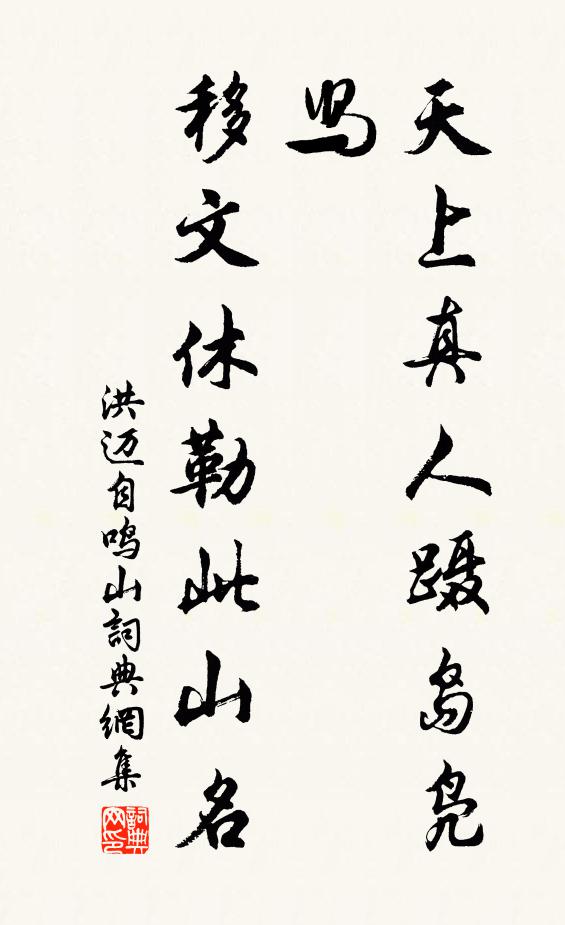 天上真人蹑岛凫
舄
移文休勒此山名
洪迈自鸣山詞典網集
詞典网印